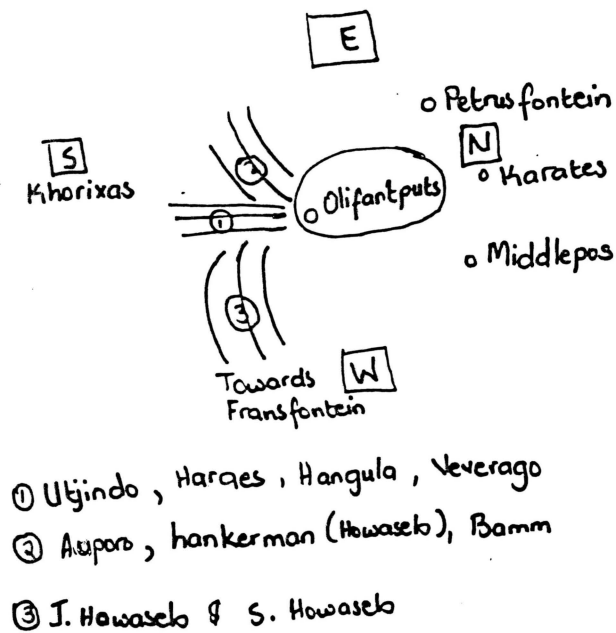 E
Petrusfontein
S
N
Khorixas
②
Karates
Olifantputs
①
Middlepos
③
Towards
W
Fransfontein
① Utjindo, Haraes, Hangula, Veverago
② Auporo, hankerman (Howaseb), Bamm
③ J. Howaseb & S. Howaseb